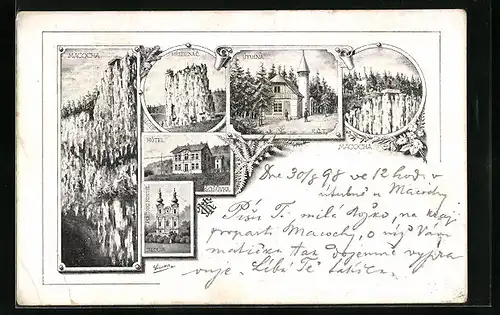 MACOCHA
ÚTULNA
K.Č.T.
MACOCHA
HÔTEL
Dne 30/8 98 ve 12 hod. v
útulně u Macochy
Píši Ti milá Božko, na kraji
propasti Macochy, o níž Vám
matička tak dojemně vypra
vuje. Líbá Tě